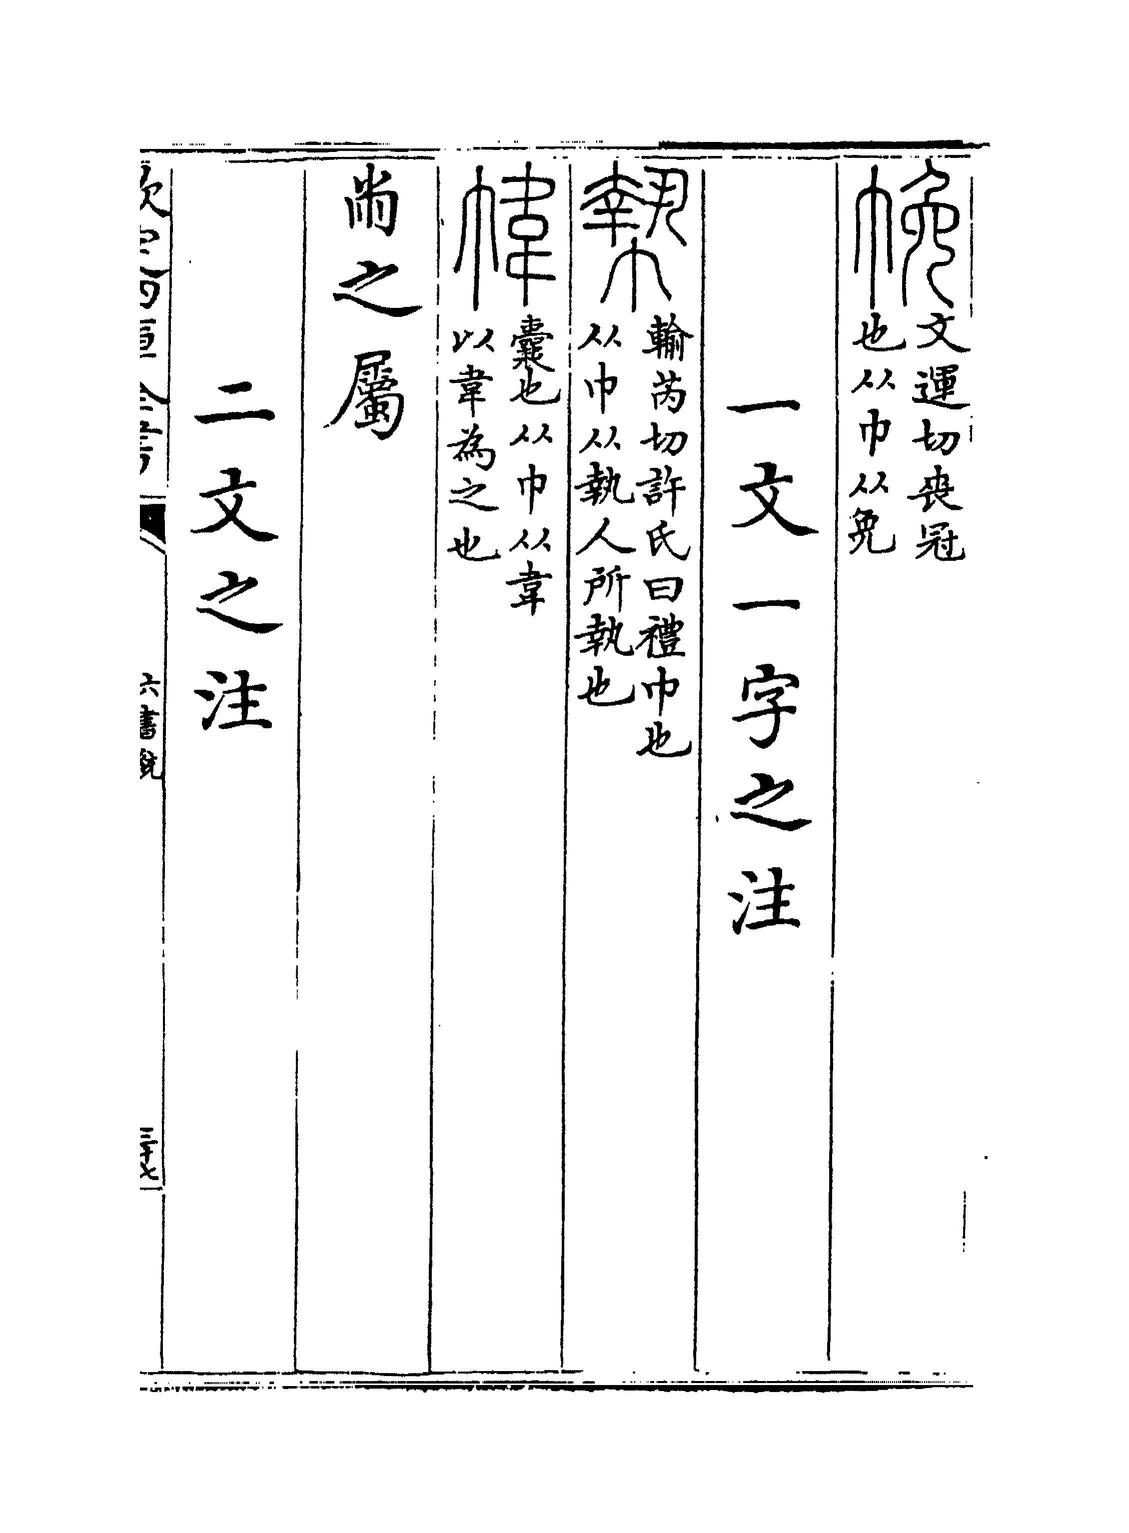 帨文運切喪冠
也从巾从免
一文一字之注
𢂷輸芮切許氏曰禮巾也
从巾从執人所執也
幃囊也从巾从韋
以韋為之也
㡀之屬
二文之注
欽定四庫全書
六書統
三十七